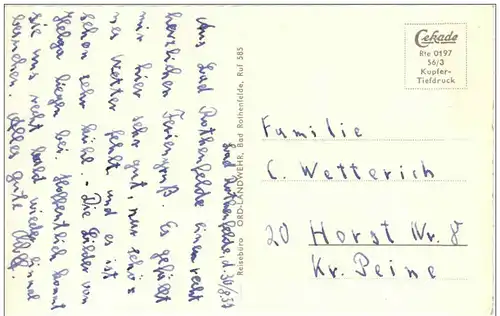 Bad Rothenfelde, d. 30/8.57
Aus Bad Rothenfelde einen recht
herzlichen Feriengruß. Es gefällt
mir hier sehr gut, nur schö=
nes Wetter fehlt und es ist
schon sehr kühl. - Die Bilder von
Helga liegen bei. Hoffentlich kommt
sie uns recht bald wieder einmal
besuchen. Alles gute
Reisebüro ORD-LANDWEHR, Bad Rothenfelde, Ruf 585
Cekade
Rte 0197
56/3
Kupfer-
Tiefdruck
Familie
C. Wetterich
20 Horst Nr. 8
Kr. Peine